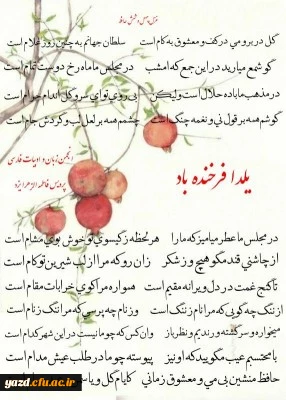 غزل چهل و ششم حافظ
گل در بر و می در کف و معشوق به کام است سلطان جهانم به چنین روز غلام است
گو شمع میارید در این جمع که امشب در مجلس ما ماه رخ دوست تمام است
در مذهب ما باده حلال است ولیکن بی روی تو ای سرو گل اندام حرام است
گوشم همه بر قول نی و نغمه چنگ است چشمم همه بر لعل لب و گردش جام است
یلدا فرخنده باد
انجمن زبان و ادبیات فارسی
پردیس فاطمه الزهرا یزد
در مجلس ما عطر میامیز که ما را هر لحظه ز گیسوی تو خوش بوی مشام است
از چاشنی قند مگو هیچ و ز شکر زان رو که مرا از لب شیرین تو کام است
تا گنج غمت در دل ویرانه مقیم است همواره مرا کوی خرابات مقام است
از ننگ چه گویی که مرا نام ز ننگ است وز نام چه پرسی که مرا ننگ ز نام است
میخواره و سرگشته و رندیم و نظرباز وان کس که چو ما نیست در این شهر کدام است
با محتسبم عیب مگویید که او نیز پیوسته چو ما در طلب عیش مدام است
حافظ منشین بی می و معشوق زمانی کایام گل و یاس
yazd.cfu.ac.ir